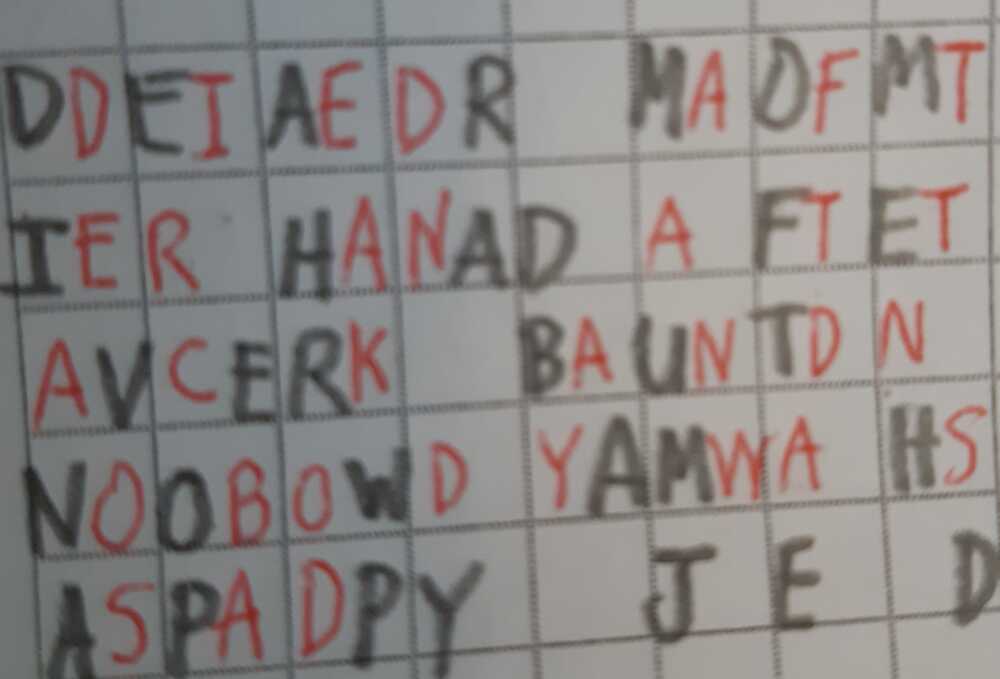 DDEIAEDR MADFMT
IER HANAD A FTET
AVCERK BAUNTDN N
NOOBOWD YAMWA HS
ASPADPY J E D